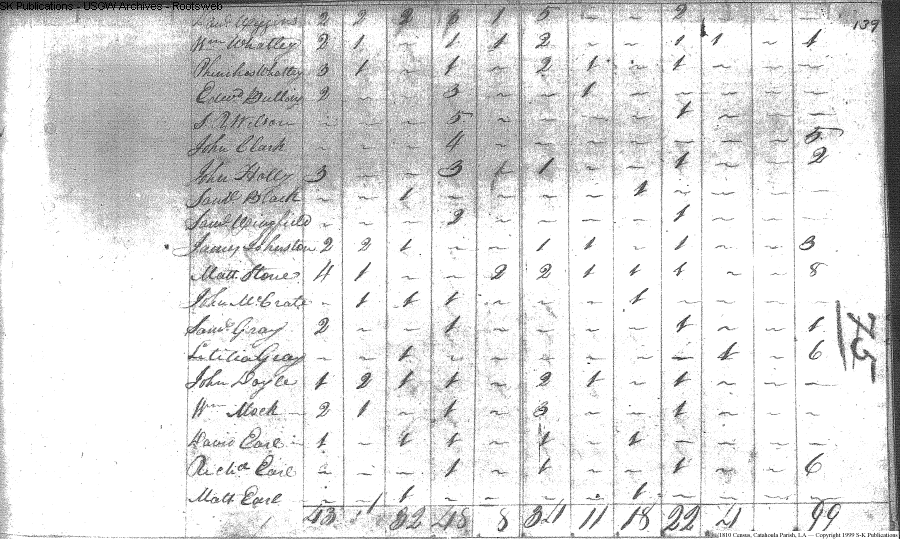 SK Publications - USGW Archives - Rootsweb
139
Wiggins 2 2 2 6 1 5 ~ ~ 2 ~ ~ ~
Wm Whatley 2 1 ~ 1 1 2 ~ ~ 1 1 ~ 1
Phinehas Whatley 3 1 ~ 1 ~ 2 1 ~ 1 ~ ~ ~
Edwd 2 ~ ~ 3 ~ ~ 1 ~ ~ ~ ~ ~
Wilson ~ ~ ~ 5 ~ ~ ~ ~ 1 ~ ~ ~
John Clark ~ ~ ~ 4 ~ ~ ~ ~ ~ ~ ~ 5
John Holly 3 ~ ~ 3 1 1 ~ ~ 1 ~ ~ 2
Saml Black ~ ~ 1 ~ ~ ~ ~ 1 ~ ~ ~ ~
Saml Wingfield ~ ~ ~ 2 ~ ~ ~ ~ 1 ~ ~ ~
James Johnston 2 2 1 ~ ~ 1 1 ~ 1 ~ ~ 3
Matt. Stone 4 1 ~ ~ 2 2 1 1 1 ~ ~ 8
John McCrate ~ 1 1 1 ~ ~ ~ 1 ~ ~ ~ ~
Saml Gray 2 ~ ~ 1 ~ ~ ~ ~ 1 ~ ~ 1
Letitia Gray ~ ~ 1 ~ ~ ~ ~ ~ ~ 1 ~ 6
John Doyle 1 2 1 1 ~ 2 1 ~ 1 ~ ~ ~
Wm Mock 2 1 ~ 1 ~ 3 ~ ~ 1 ~ ~ ~
David Earl 1 ~ 1 1 ~ 1 ~ 1 ~ ~ ~ ~
Richd Earl ~ ~ ~ 1 ~ 1 ~ ~ 1 ~ ~ 6
Matt Earl ~ ~ 1 ~ ~ ~ ~ 1 ~ ~ ~ ~
43 11 32 48 8 34 11 18 22 4 99
75
1810 Census, Catahoula Parish, LA — Copyright 1999 S-K Publications